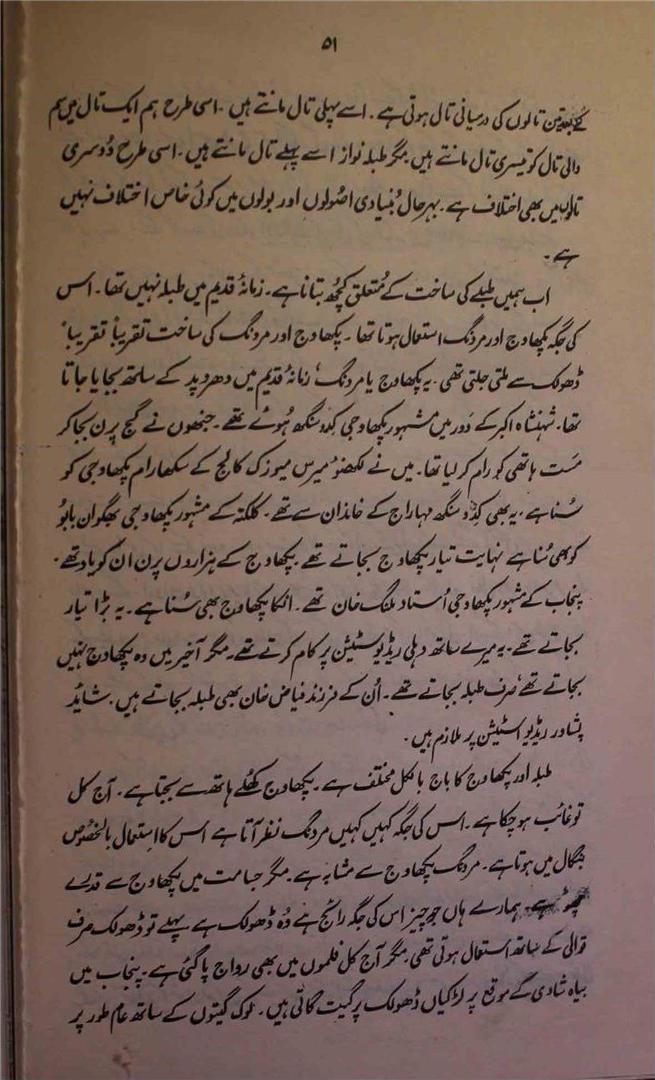 ۵۱
کے بعد تین تالوں کی درمیانی تال ہوتی ہے۔ اسے پہلی تال مانتے ہیں۔ اسی طرح ہم ایک تال میں سم
والی تال کو تیسری تال مانتے ہیں۔ مگر طبلہ نواز اسے پہلے تال مانتے ہیں۔ اسی طرح دُوسری
تالوں میں بھی اختلاف ہے۔ بہرحال بُنیادی اصُولوں اور بولوں میں کوئی خاص اختلاف نہیں
ہے۔
اب ہمیں طبلے کی ساخت کے مُتعلق کچُھ بتانا ہے۔ زمانۂ قدیم میں طبلہ نہیں تھا۔ اس
کی جگہ پکھاوج اور مردنگ استعمال ہوتا تھا۔ پکھاوج اور مردنگ کی ساخت تقریباً تقریباً
ڈھولک سے ملتی جلتی تھی۔ یہ پکھاوج یا مردنگ، زمانۂ قدیم میں دھرپد کے ساتھ بجایا جاتا
تھا۔ شہنشاہ اکبر کے دَور میں مشہور پکھاوجی کدو سنگھ ہُوئے تھے۔ جنھوں نے گج پرن بجا کر
مست ہاتھی کو رام کر لیا تھا۔ میں نے لکھنؤ میرس میوزک کالج کے سکھا رام پکھاوجی کو
سُنا ہے۔ یہ بھی کدّو سنگھ مہاراج کے خاندان سے تھے۔ کلکتہ کے مشہور پکھاوجی بھگوان بابُو
کو بھی سُنا ہے نہایت تیار پکھاوج بجاتے تھے۔ پکھاوج کے ہزاروں پرن ان کو یاد تھے۔
پنجاب کے مشہور پکھاوجی اُستاد ملنگ خان تھے۔ انکا پکھاوج بھی سُنا ہے۔ یہ بڑا تیار
بجاتے تھے۔ یہ میرے ساتھ دہلی ریڈیو سٹیشن پر کام کرتے تھے۔ مگر آخیر میں وہ پکھاوج نہیں
بجاتے تھے، صرف طبلہ بجاتے تھے۔ اُن کے فرزند فیاض خان بھی طبلہ بجاتے ہیں۔ شائد
پشاور ریڈیو اسٹیشن پر ملازم ہیں۔
طبلہ اور پکھاوج کا باج بالکل مختلف ہے۔ پکھاوج کھُلے ہاتھ سے بجتا ہے۔ آج کل
تو غائب ہو چکا ہے۔ اس کی جگہ کہیں کہیں مردنگ نظر آتا ہے اس کا استعمال بالخصُوص
بنگال میں ہوتا ہے۔ مردنگ پکھاوج سے مشابہ ہے۔ مگر جسامت میں پکھاوج سے قدرے
ہے۔ ہمارے ہاں جو چیز اس کی جگہ رائج ہے وُہ ڈھولک ہے۔ پہلے تو ڈھولک صرف
قوالی کے ساتھ استعمال ہوتی تھی۔ مگر آج کل فلموں میں بھی رواج پا گئی ہے۔ پنجاب میں
بیاہ شادی کے موقع پر لڑکیاں ڈھولک پر گیت گاتی ہیں۔ لوک گیتوں کے ساتھ عام طور پر